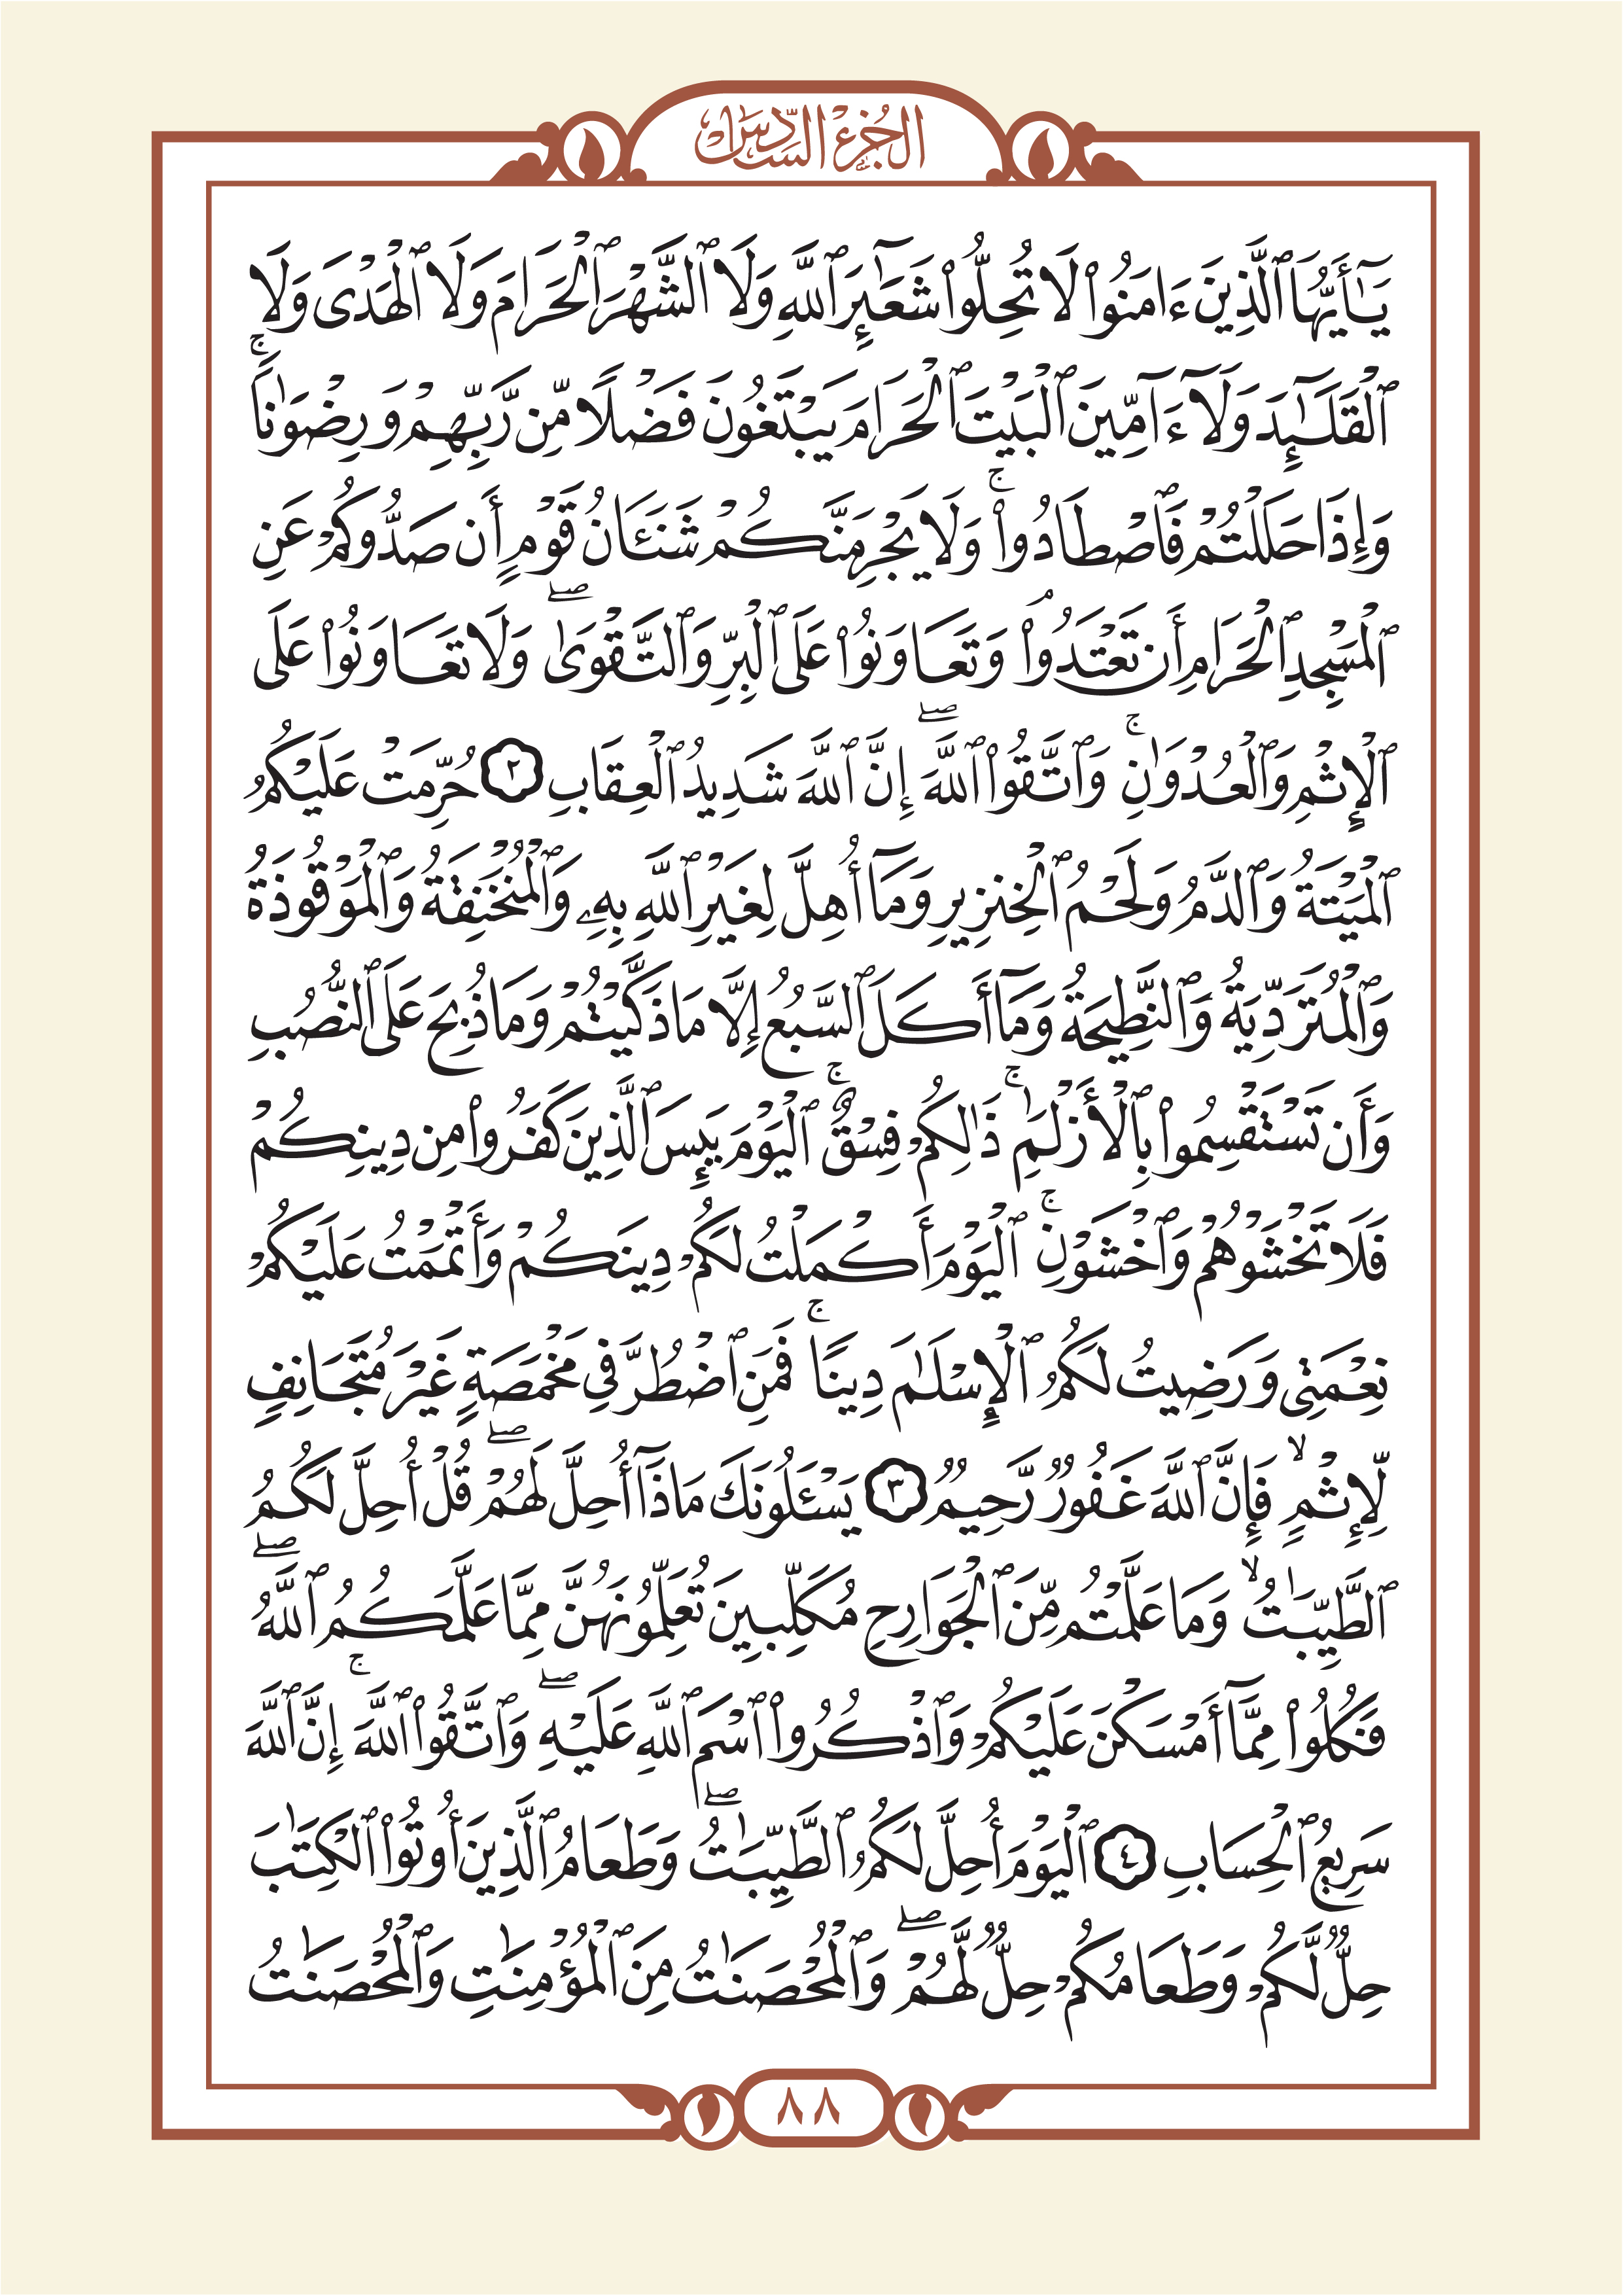 الجزء السادس
يَٰٓأَيُّهَا ٱلَّذِينَ ءَامَنُوا۟ لَا تُحِلُّوا۟ شَعَٰٓئِرَ ٱللَّهِ وَلَا ٱلشَّهْرَ ٱلْحَرَامَ وَلَا ٱلْهَدْىَ وَلَا
ٱلْقَلَٰٓئِدَ وَلَآ ءَآمِّينَ ٱلْبَيْتَ ٱلْحَرَامَ يَبْتَغُونَ فَضْلًا مِّن رَّبِّهِمْ وَرِضْوَٰنًا ۚ
وَإِذَا حَلَلْتُمْ فَٱصْطَادُوا۟ ۚ وَلَا يَجْرِمَنَّكُمْ شَنَـَٔانُ قَوْمٍ أَن صَدُّوكُمْ عَنِ
ٱلْمَسْجِدِ ٱلْحَرَامِ أَن تَعْتَدُوا۟ ۘ وَتَعَاوَنُوا۟ عَلَى ٱلْبِرِّ وَٱلتَّقْوَىٰ ۖ وَلَا تَعَاوَنُوا۟ عَلَى
ٱلْإِثْمِ وَٱلْعُدْوَٰنِ ۚ وَٱتَّقُوا۟ ٱللَّهَ ۖ إِنَّ ٱللَّهَ شَدِيدُ ٱلْعِقَابِ ٢ حُرِّمَتْ عَلَيْكُمُ
ٱلْمَيْتَةُ وَٱلدَّمُ وَلَحْمُ ٱلْخِنزِيرِ وَمَآ أُهِلَّ لِغَيْرِ ٱللَّهِ بِهِۦ وَٱلْمُنْخَنِقَةُ وَٱلْمَوْقُوذَةُ
وَٱلْمُتَرَدِّيَةُ وَٱلنَّطِيحَةُ وَمَآ أَكَلَ ٱلسَّبُعُ إِلَّا مَا ذَكَّيْتُمْ وَمَا ذُبِحَ عَلَى ٱلنُّصُبِ
وَأَن تَسْتَقْسِمُوا۟ بِٱلْأَزْلَٰمِ ۚ ذَٰلِكُمْ فِسْقٌ ۗ ٱلْيَوْمَ يَئِسَ ٱلَّذِينَ كَفَرُوا۟ مِن دِينِكُمْ
فَلَا تَخْشَوْهُمْ وَٱخْشَوْنِ ۚ ٱلْيَوْمَ أَكْمَلْتُ لَكُمْ دِينَكُمْ وَأَتْمَمْتُ عَلَيْكُمْ
نِعْمَتِى وَرَضِيتُ لَكُمُ ٱلْإِسْلَٰمَ دِينًا ۚ فَمَنِ ٱضْطُرَّ فِى مَخْمَصَةٍ غَيْرَ مُتَجَانِفٍ
لِّإِثْمٍ ۙ فَإِنَّ ٱللَّهَ غَفُورٌ رَّحِيمٌ ٣ يَسْـَٔلُونَكَ مَاذَآ أُحِلَّ لَهُمْ ۖ قُلْ أُحِلَّ لَكُمُ
ٱلطَّيِّبَٰتُ ۙ وَمَا عَلَّمْتُم مِّنَ ٱلْجَوَارِحِ مُكَلِّبِينَ تُعَلِّمُونَهُنَّ مِمَّا عَلَّمَكُمُ ٱللَّهُ ۖ
فَكُلُوا۟ مِمَّآ أَمْسَكْنَ عَلَيْكُمْ وَٱذْكُرُوا۟ ٱسْمَ ٱللَّهِ عَلَيْهِ ۖ وَٱتَّقُوا۟ ٱللَّهَ ۚ إِنَّ ٱللَّهَ
سَرِيعُ ٱلْحِسَابِ ٤ ٱلْيَوْمَ أُحِلَّ لَكُمُ ٱلطَّيِّبَٰتُ ۖ وَطَعَامُ ٱلَّذِينَ أُوتُوا۟ ٱلْكِتَٰبَ
حِلٌّ لَّكُمْ وَطَعَامُكُمْ حِلٌّ لَّهُمْ ۖ وَٱلْمُحْصَنَٰتُ مِنَ ٱلْمُؤْمِنَٰتِ وَٱلْمُحْصَنَٰتُ
٨٨